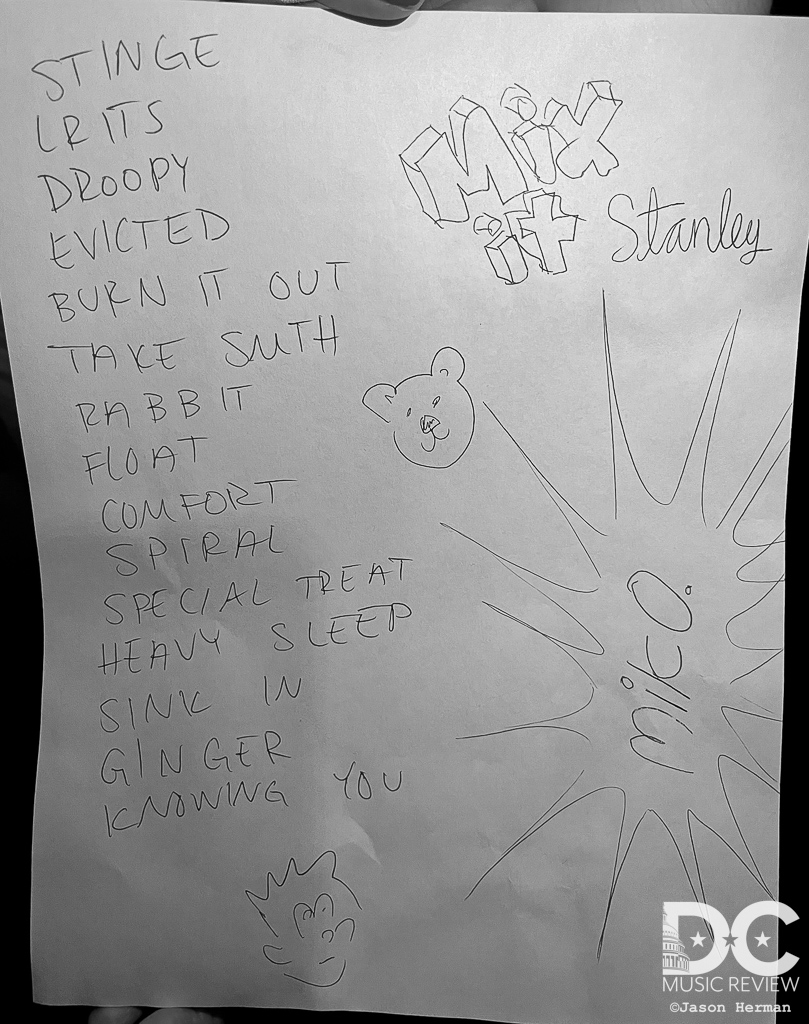 STINGE
LRITS
DROOPY
EVICTED
BURN IT OUT
TAKE SMTH
RABBIT
FLOAT
COMFORT
SPIRAL
SPECIAL TREAT
HEAVY SLEEP
SINK IN
GINGER
KNOWING YOU
Mix
it Stanley
miko.
DC
MUSIC REVIEW
©Jason Herman